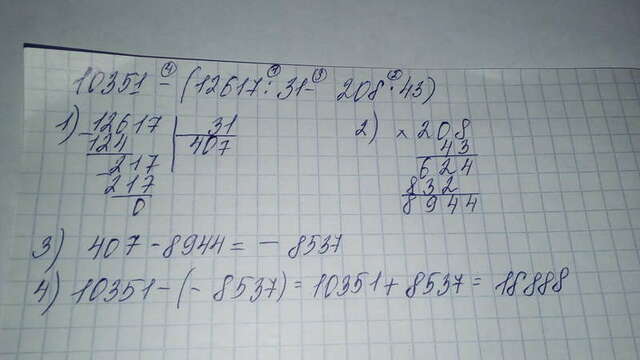 10351 - (12617 : 31 - 208 · 43)
1) 12617 | 31
124 | 407
217
217
0
2) × 208
43
624
832
8944
3) 407 - 8944 = - 8537
4) 10351 - (- 8537) = 10351 + 8537 = 18888